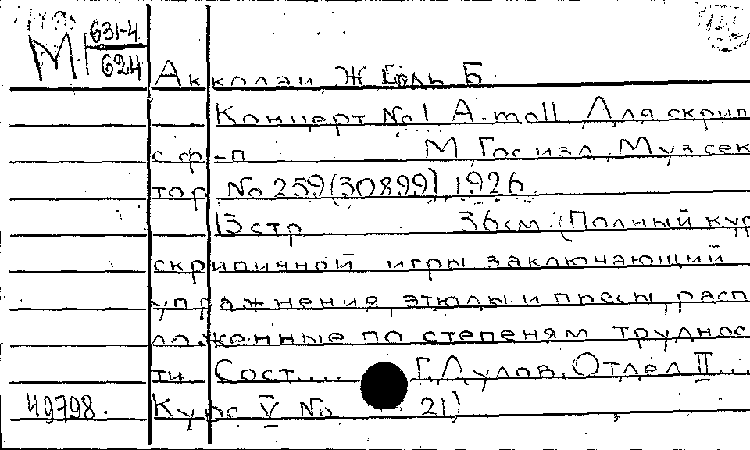 М1 631-4
624
Акколаи Ж Боль Б.
Концерт No 1 A-moll Для скрип
с ф-п М Госизд. Музсек
тор No 259 (30899) 1926.
13 стр 36 см (Полный кур
скрипичной игры заключающий
упражнения, этюды и пьесы, расп
ложенные по степеням труднос
ти Сост.... Г. Дулов. Отдел II...
49798. Курс V No 21)